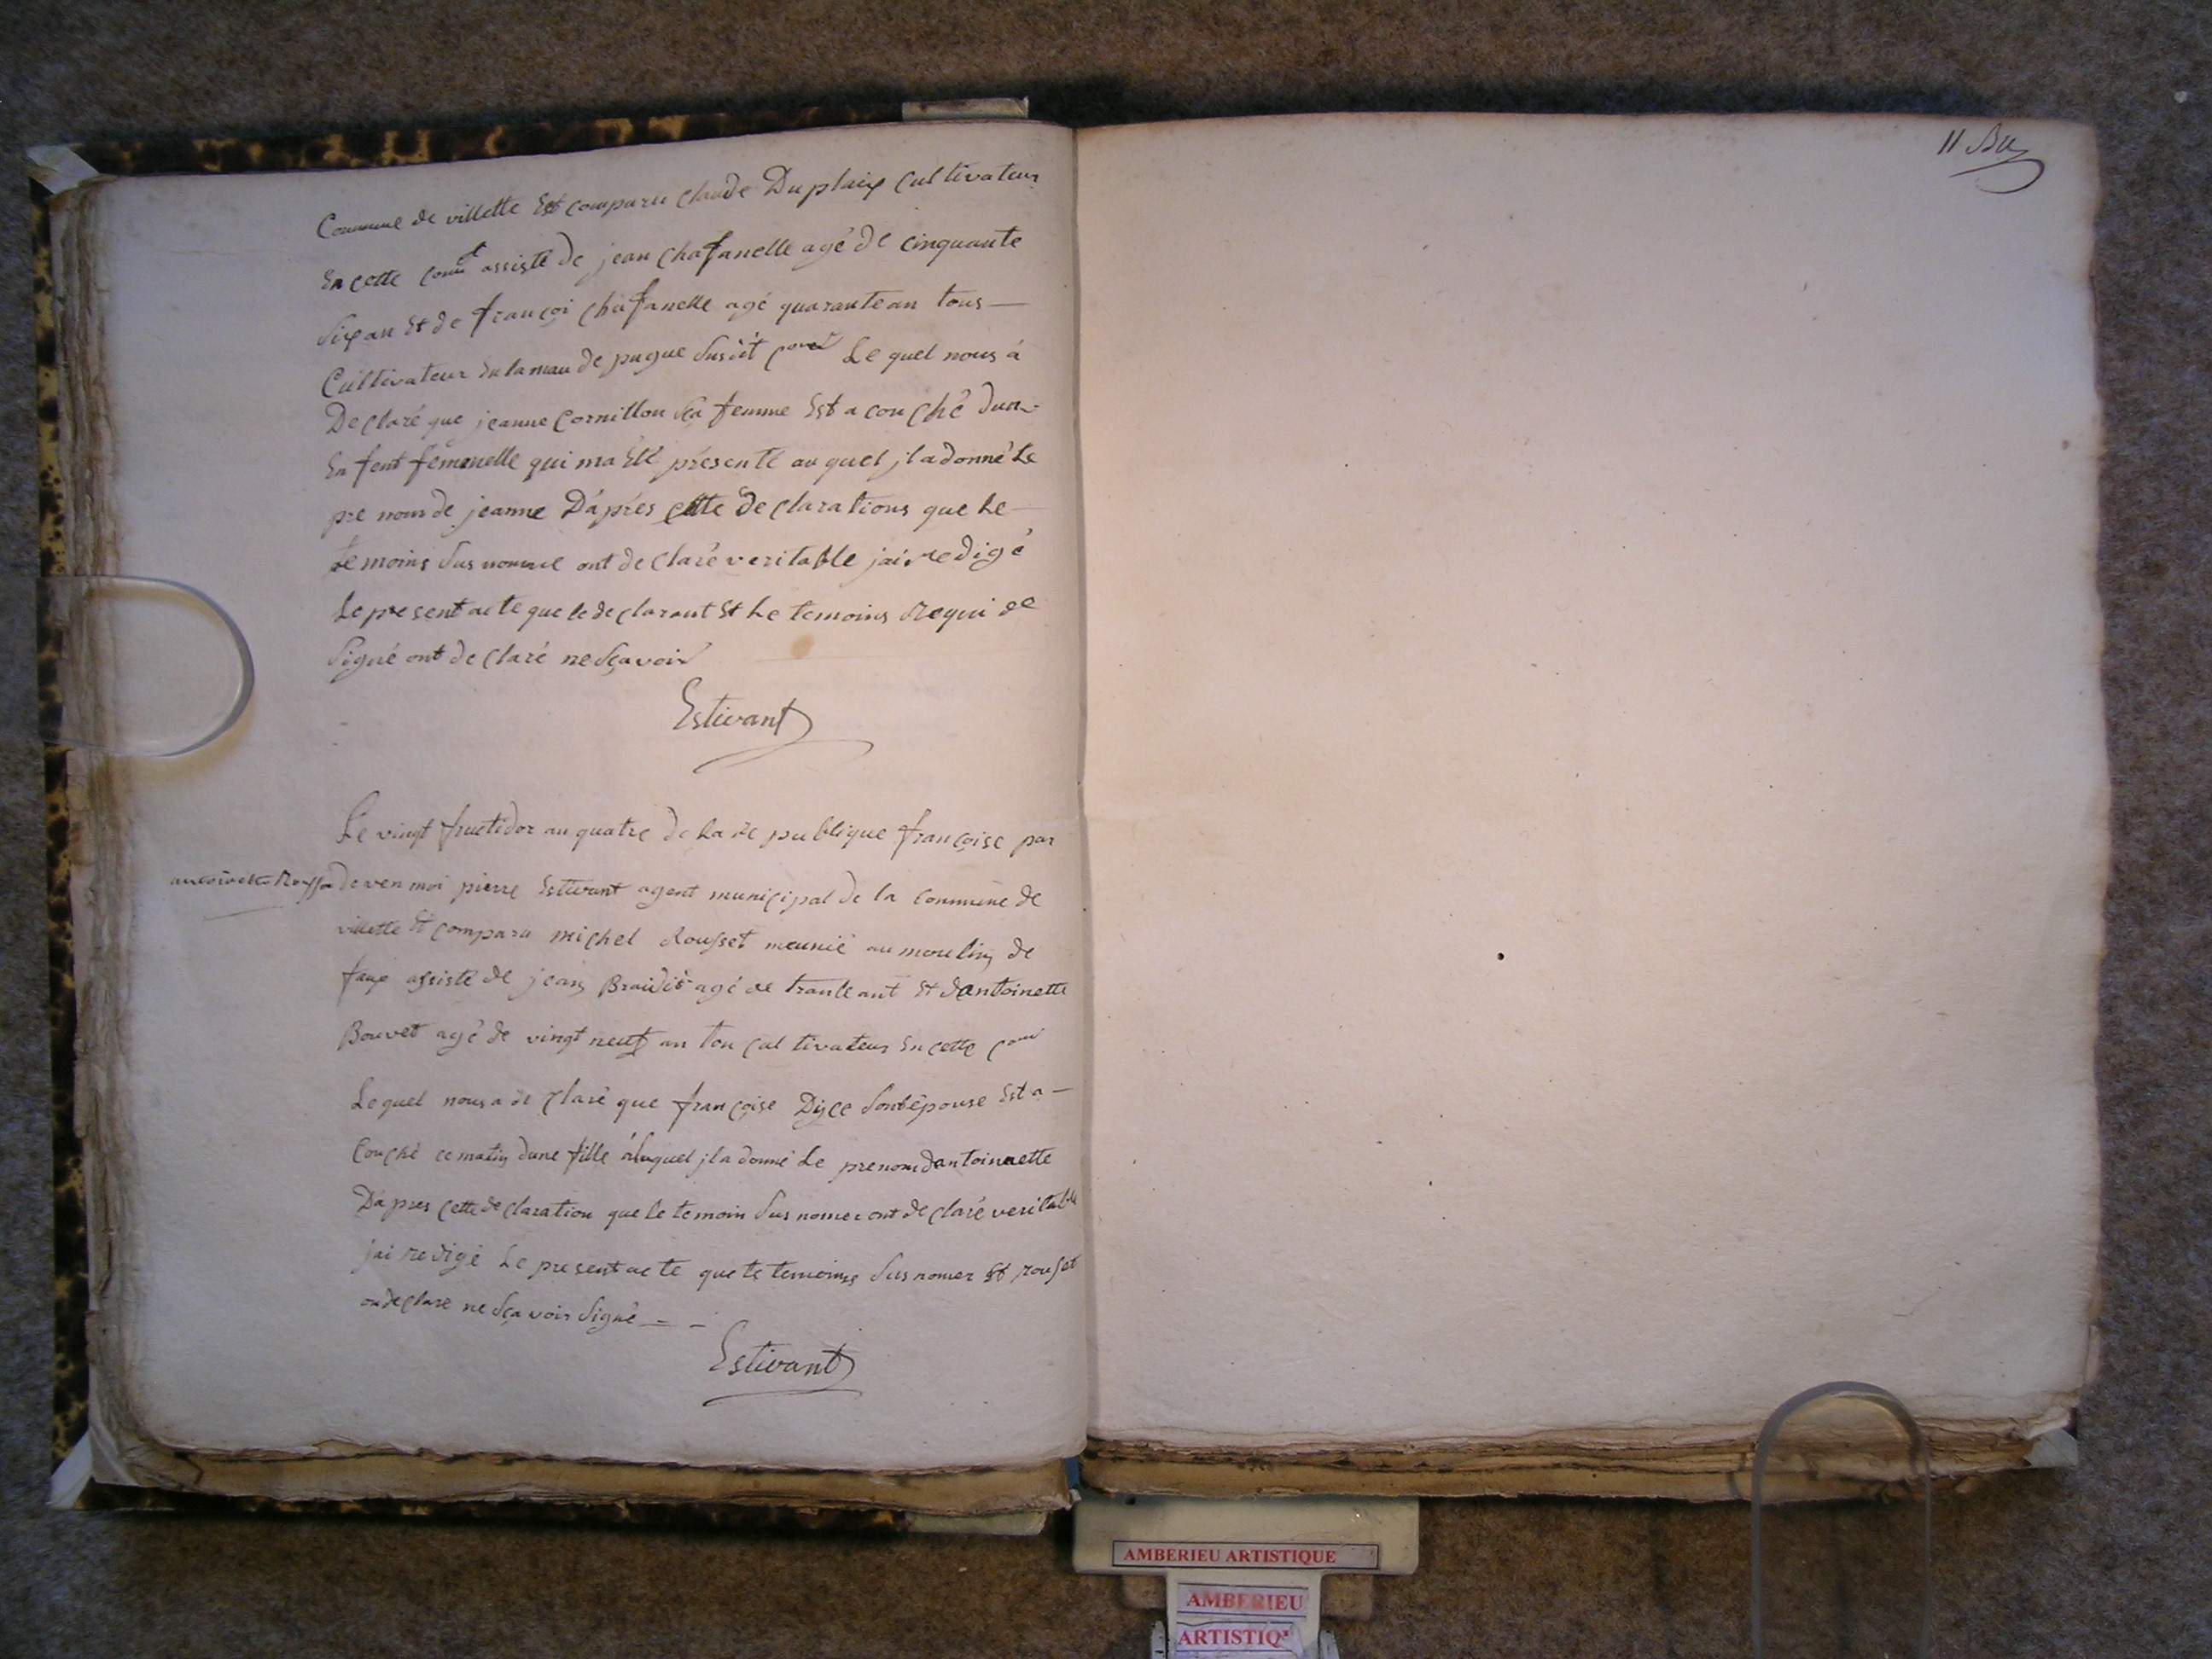 Commune de villette Est comparu claude Duplaix Cultivateur
En cette com assisté de jean chafanelle agé de cinquante
sixan Et de françoi chafanelle agé quarantean tous
Cultivateur Enlamau de pugue susdit Le quel nous á
Declaré que jeanne Cornillon sa femme Est a couché dun
Enfent femenelle qui ma Eté presenté au quel jladonné Le
pre nom de jeanne D'áprés cette De clarations que Le
temoins sus nommé ont de claré veritable jai redigé
Le present acte que le de clarant Et Le temoins Requi de
signé ont de claré ne sçavoir
Estivant
Le vingt fructidor an quatre de La Re publique françoise par
antoinette Rousset
deven moi pierre Estivant agent municipal de la commune de
villette Et comparu michel Rousset meunié au moulin de
faux assisté de jean Braidit agé de trante ant Et dantoinette
Bouvet agé de vingt neuf an tou cul tivateur En cette com
Lequel nous a de claré que françoise Dijce sont épouse Est a
Couché ce matin dune fille álaquel jla donné Le prenom dantoinaette
Dápres cette de claration que le temoin sus nomer ont de claré veritable
jai redigé Le present acte que te temoins sus nomer Et rouset
on de clare ne sça voir signé
Estivant
11
AMBERIEU ARTISTIQUE
AMBERIEU
ARTISTIQ